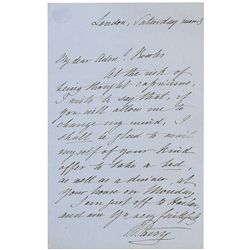 London, Saturday morn:g
My dear Aden: Bowles
At the risk of
being thought capricious,
I wish to say that, if
you will allow me to
change my mind, I
shall be glad to avail
myself of your kind
offer to take a bed
as well as a dinner, at
your house on Monday.
I am just off to
and am yrs very faithfully